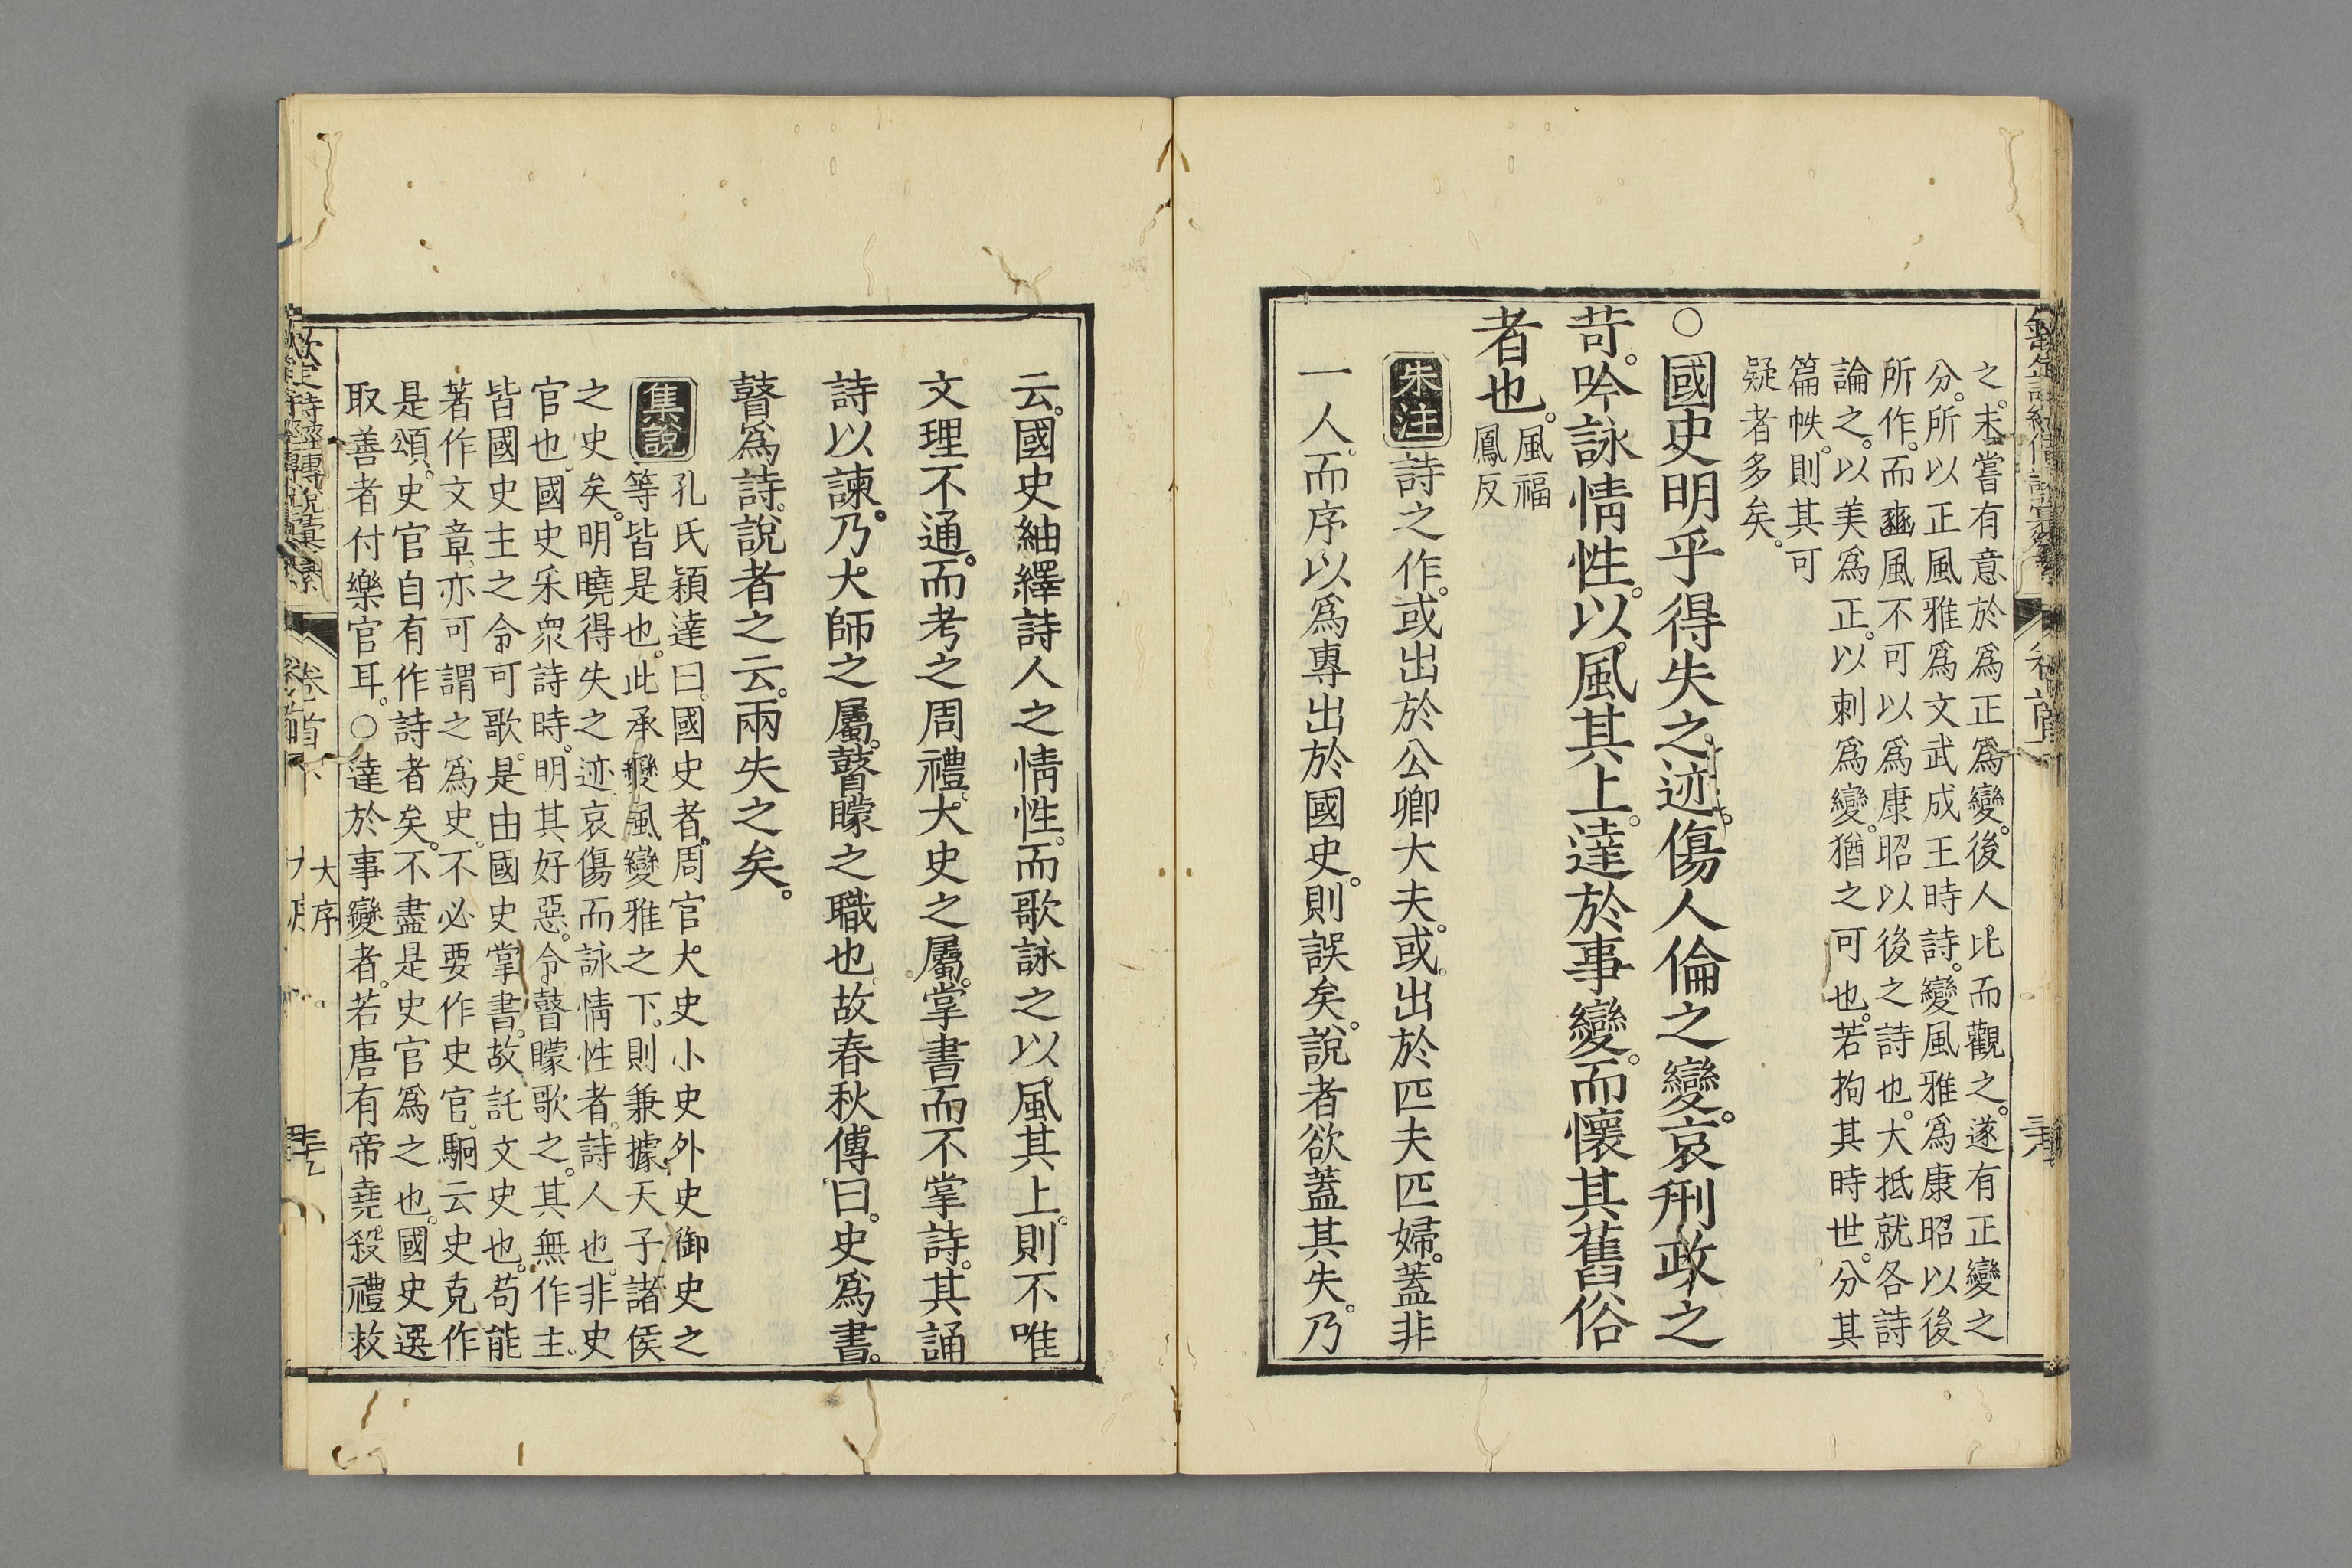 之。未嘗有意於為正為變。後人比而觀之。遂有正變之
分。所以正風雅爲文武成王時詩。變風雅爲康昭以後
所作。而豳風不可以爲康昭以後之詩也。大抵就各詩
論之。以美爲正。以刺爲變。猶之可也。若拘其時世。分其
篇帙。則其可
疑者多矣。
○國史明乎得失之迹。傷人倫之變。哀刑政之
苛。吟詠情性。以風其上。達於事變。而懷其舊俗
者也。風福
鳳反
朱注 詩之作。或出於公卿大夫。或出於匹夫匹婦。蓋非
一人。而序以爲專出於國史。則誤矣。說者欲蓋其失。乃
云。國史紬繹詩人之情性。而歌詠之以風其上。則不唯
文理不通。而考之周禮。大史之屬。掌書而不掌詩。其誦
詩以諫。乃大師之屬。瞽矇之職也。故春秋傳曰。史爲書。
瞽爲詩。說者之云。兩失之矣。
集說 孔氏穎達曰。國史者。周官大史小史外史御史之
等皆是也。此承變風變雅之下。則兼據天子諸侯
之史矣。明曉得失之迹哀傷而詠情性者。詩人也。非史
官也。國史采衆詩時。明其好惡。令瞽矇歌之。其無作主。
皆國史主之令可歌。是由國史掌書。故託文史也。苟能
著作文章。亦可謂之爲史。不必要作史官。駉云史克作
是頌。史官自有作詩者矣。不盡是史官爲之也。國史選
取善者付樂官耳。○達於事變者。若唐有帝堯。殺禮救
欽定詩經傳說彙纂
卷首下
大序